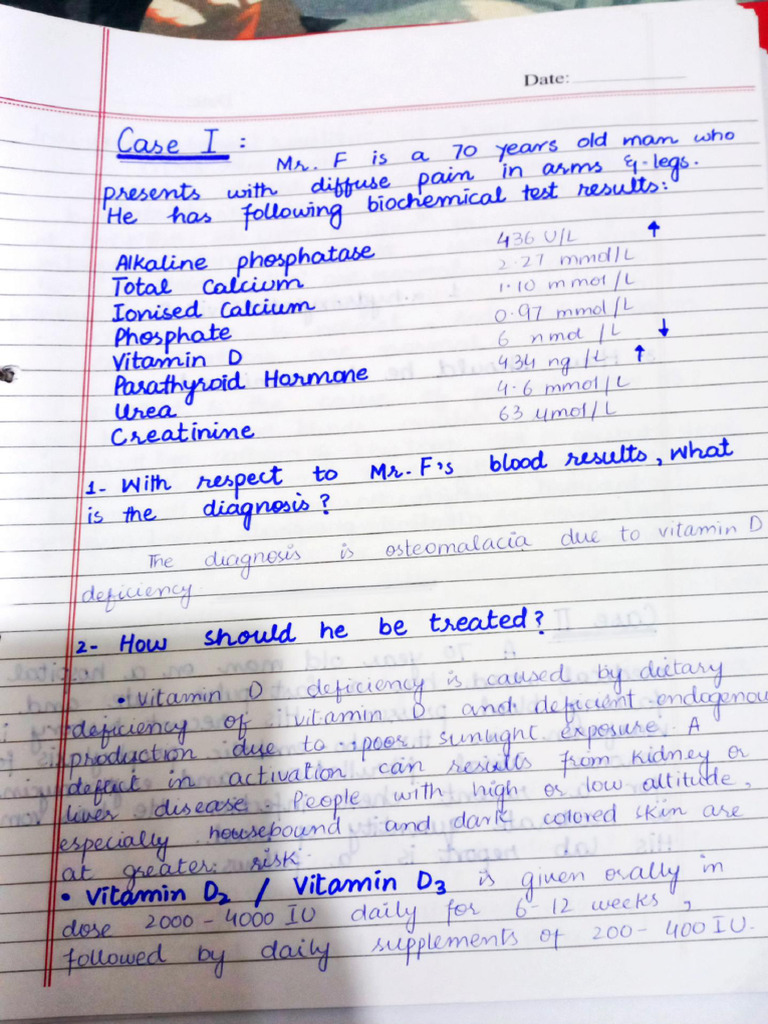 Date:
Case I :
Mr. F is a 70 years old man who
presents with diffuse pain in arms & legs.
He has following biochemical test results:
Alkaline phosphatase 436 U/L ↑
Total Calcium 2.27 mmol/L
Ionised Calcium 1.10 mmol/L
Phosphate 0.97 mmol/L
Vitamin D 6 nmol/L ↓
Parathyroid Hormone 434 ng/L ↑
Urea 4.6 mmol/L
Creatinine 63 µmol/L
1- With respect to Mr. F's blood results, what
is the diagnosis?
The diagnosis is osteomalacia due to vitamin D
deficiency.
2- How should he be treated?
• Vitamin D deficiency is caused by dietary
deficiency of vitamin D and deficient endogenou
production due to poor sunlight exposure. A
defect in activation can results from kidney or
liver disease. People with high or low altitude,
especially housebound and dark colored skin are
at greater risk.
• Vitamin D2 / Vitamin D3 is given orally in
dose 2000-4000 IU daily for 6-12 weeks,
followed by daily supplements of 200-400 IU.